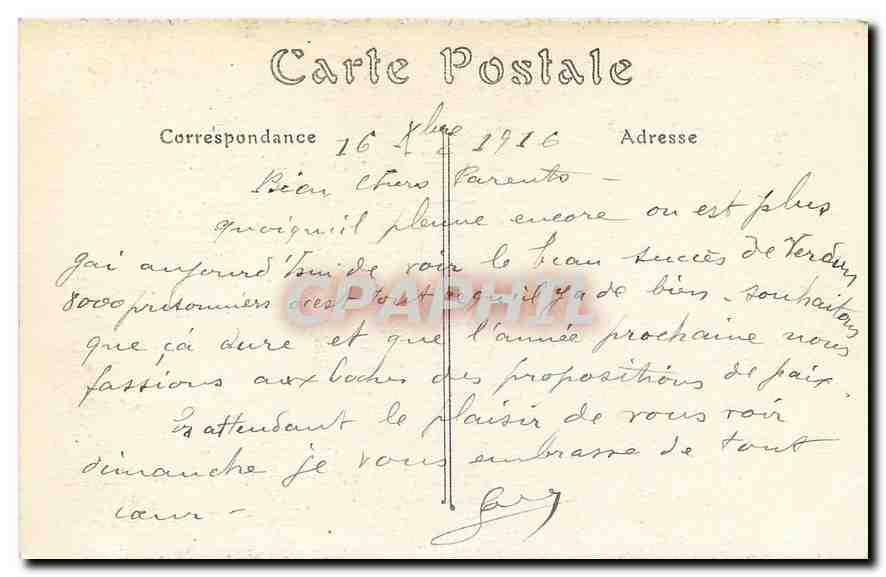 Carte Postale
Correspondance 16 Xbre 1916 Adresse
Bien Chers Parents -
quoiqu'il pleuve encore on est plus
gai aujourd'hui de voir le beau succès de Verdun
8000 prisonniers c'est tout ce qu'il y a de bien - souhaitons
que ça dure et que l'année prochaine nous
fassions aux boches des propositions de paix
En attendant le plaisir de vous voir
dimanche je vous embrasse de tout
cœur -
CPAPHIL